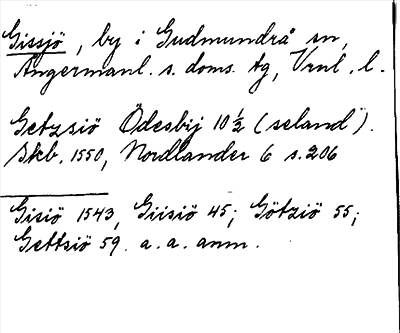 Gissjö, by i Gudmundrå sn,
Ångermanl. s. doms. tg, Vrnl. l.
Getzsiö Ödesbij 10 ½ (seland).
Skb. 1550, Nordlander 6 s. 206
Gisiö 1543, Giisiö 45; Götziö 55;
Gettsiö 59. a. a. anm.